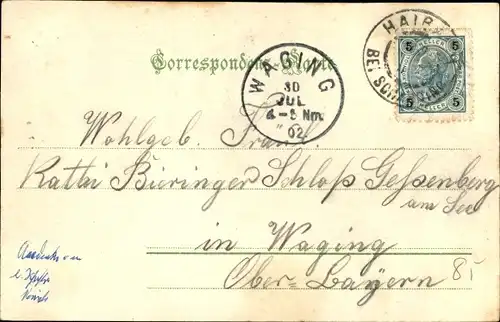 Correspondenz-Karte
WAGING
30
JUL
4-5 Nm.
02
HAIB
BEI SCH
5 HELLER 5
5 5
Wohlgeb.
Kathi Bieringer Schloß Gessenberg
am See
in Waging
Ober=Bayern
85